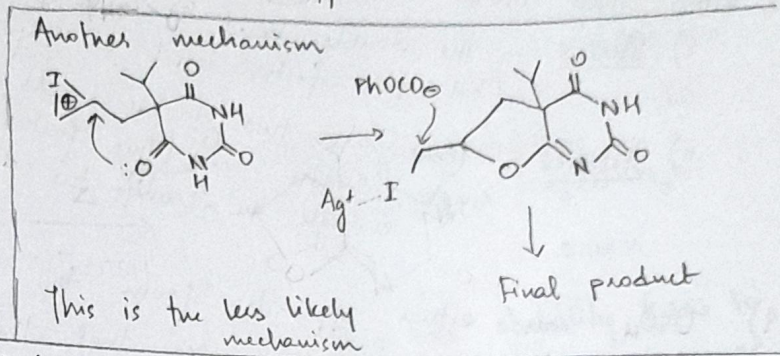 Another mechanism
I
⊕
O
NH
:O
N
H
O
PhOCO⊖
Ag+ I
O
NH
O
N
O
Final product
This is the less likely
mechanism